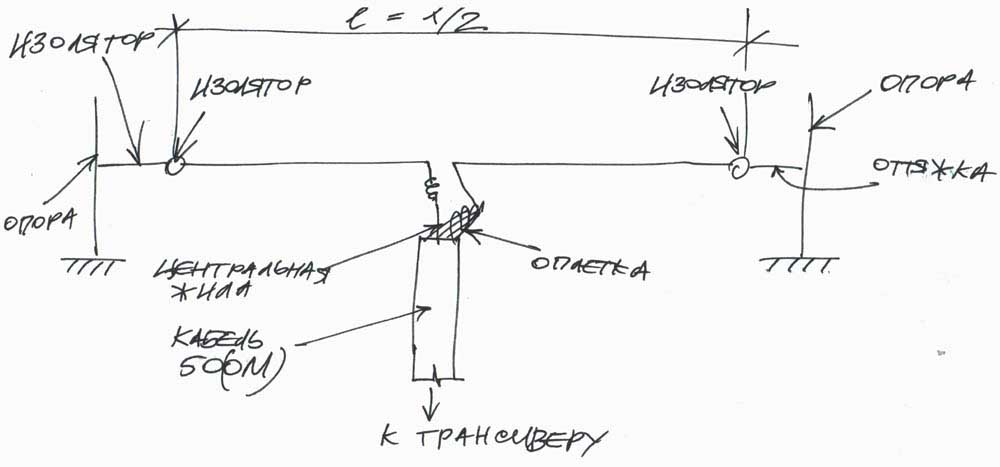 l = λ/2
ИЗОЛЯТОР
ИЗОЛЯТОР
ИЗОЛЯТОР
ОПОРА
ОТТЯЖКА
ОПОРА
ЦЕНТРАЛЬНАЯ
ЖИЛА
ОПЛЕТКА
КАБЕЛЬ
50(ОМ)
К ТРАНСИВЕРУ